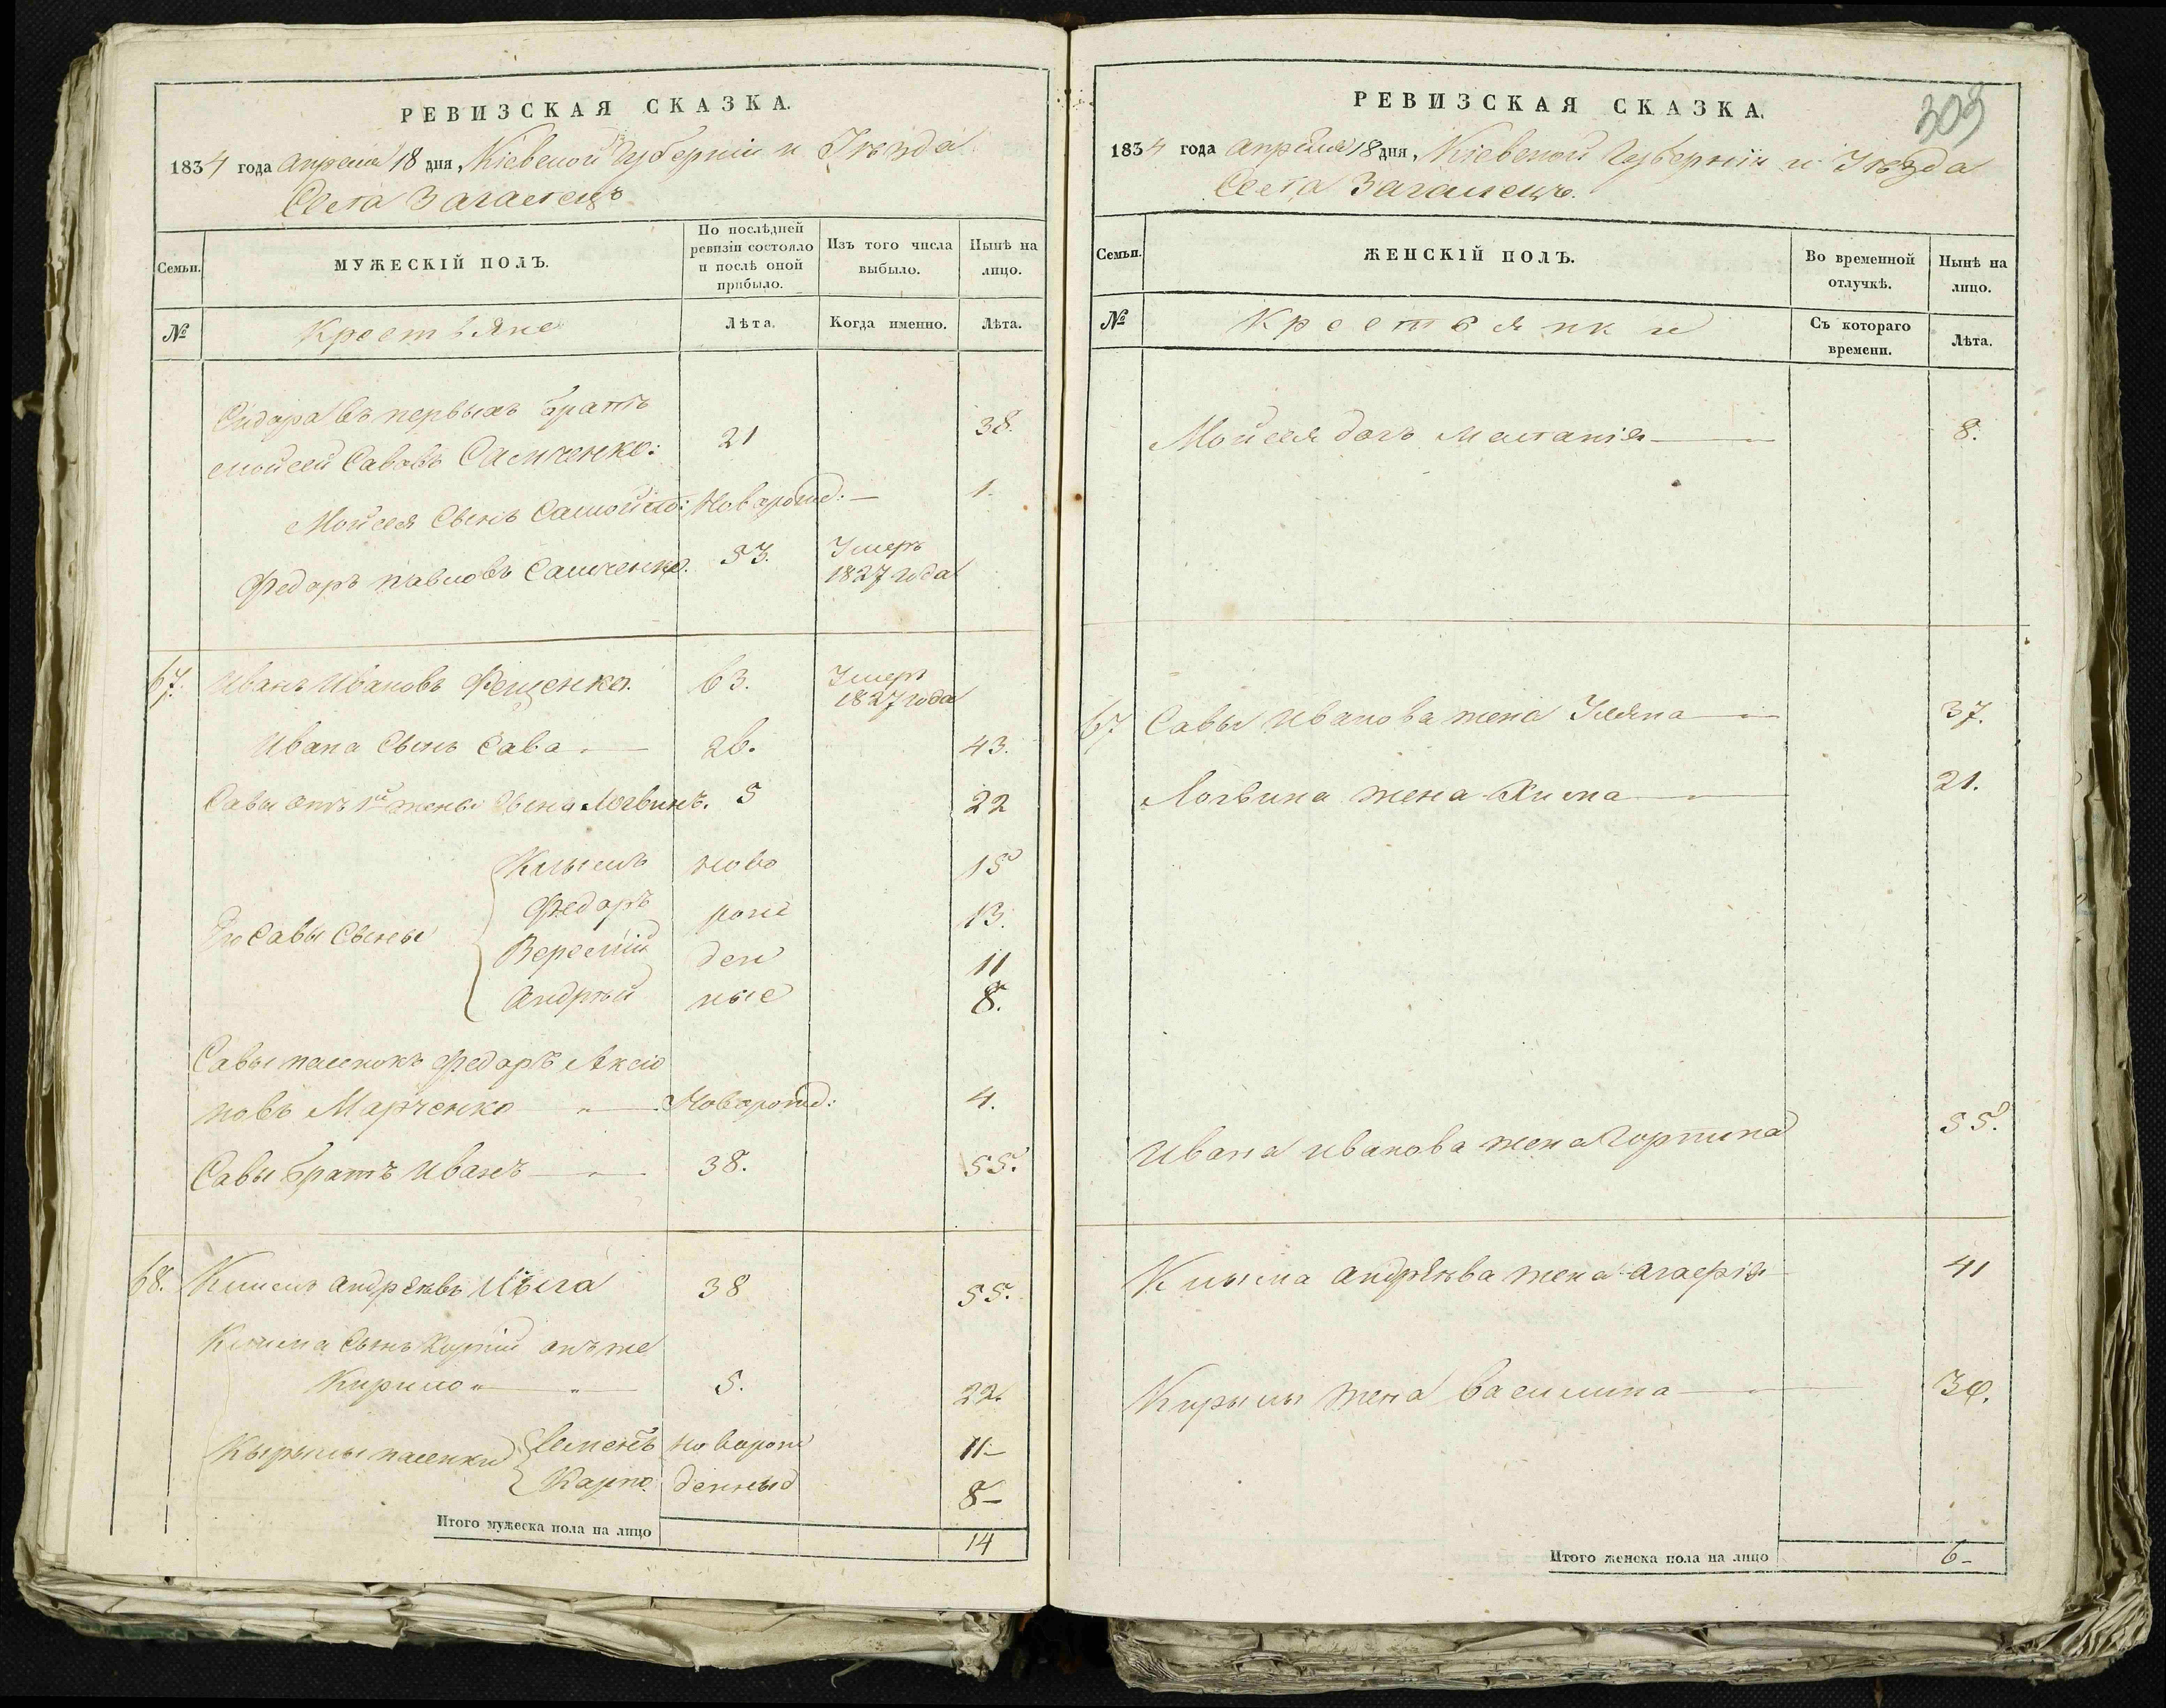 РЕВИЗСКАЯ СКАЗКА.
1834 года Апреля 18 дня, Кіевской Губерніи и Уѣзда
Села Загалецъ
Семьи.
МУЖЕСКІЙ ПОЛЪ.
По послѣдней ревизіи состояло и послѣ оной прибыло.
Изъ того числа выбыло.
Нынѣ на лицо.
№
Крестьяне
Лѣта.
Когда именно.
Лѣта.
Сидора въ первыхъ братъ
Мойсей Савовъ Самченко: 21 38.
Мойсея Сынъ Самойло: Новорожд: — 1.
Федоръ Павловъ Самченко. 53. Умеръ 1827 года
67. Иванъ Ивановъ Фещенко. 63. Умеръ 1827 года
Ивана Сынъ Сава 26. 43.
Савы отъ 1й жены Сынъ Логвинъ. 5 22
Его Савы Сыны
Клымъ ново 15
Федоръ рож 13.
Веремій ден 11
Андрѣй ные 8.
Савы пасенокъ Федоръ Аксіо
новъ Марченко Новорожд: 4.
Савы братъ Иванъ 38. 55.
68. Климъ Андрѣевъ 38 55.
Клима Сынъ онъ же
Кирило 5. 22.
Кырылы пасенки
Семенъ новорож 11–
Карпо денные 8–
Итого мужеска пола на лицо 14
309
РЕВИЗСКАЯ СКАЗКА.
1834 года Апреля 18 дня, Кіевской Губерніи и Уѣзда
Села Загалецъ.
Семьи.
ЖЕНСКІЙ ПОЛЪ.
Во временной отлучкѣ.
Нынѣ на лицо.
№
Крестьянки
Съ котораго времени.
Лѣта.
Мойсея дочь Меланія 8.
67 Савы Иванова жена Уляна 37.
Логвина жена Акилина 21.
Ивана Иванова жена Горпина 55.
Клыма Андрѣева жена Агафія 41
Кырылы жена Василина 30.
Итого женска пола на лицо 6–